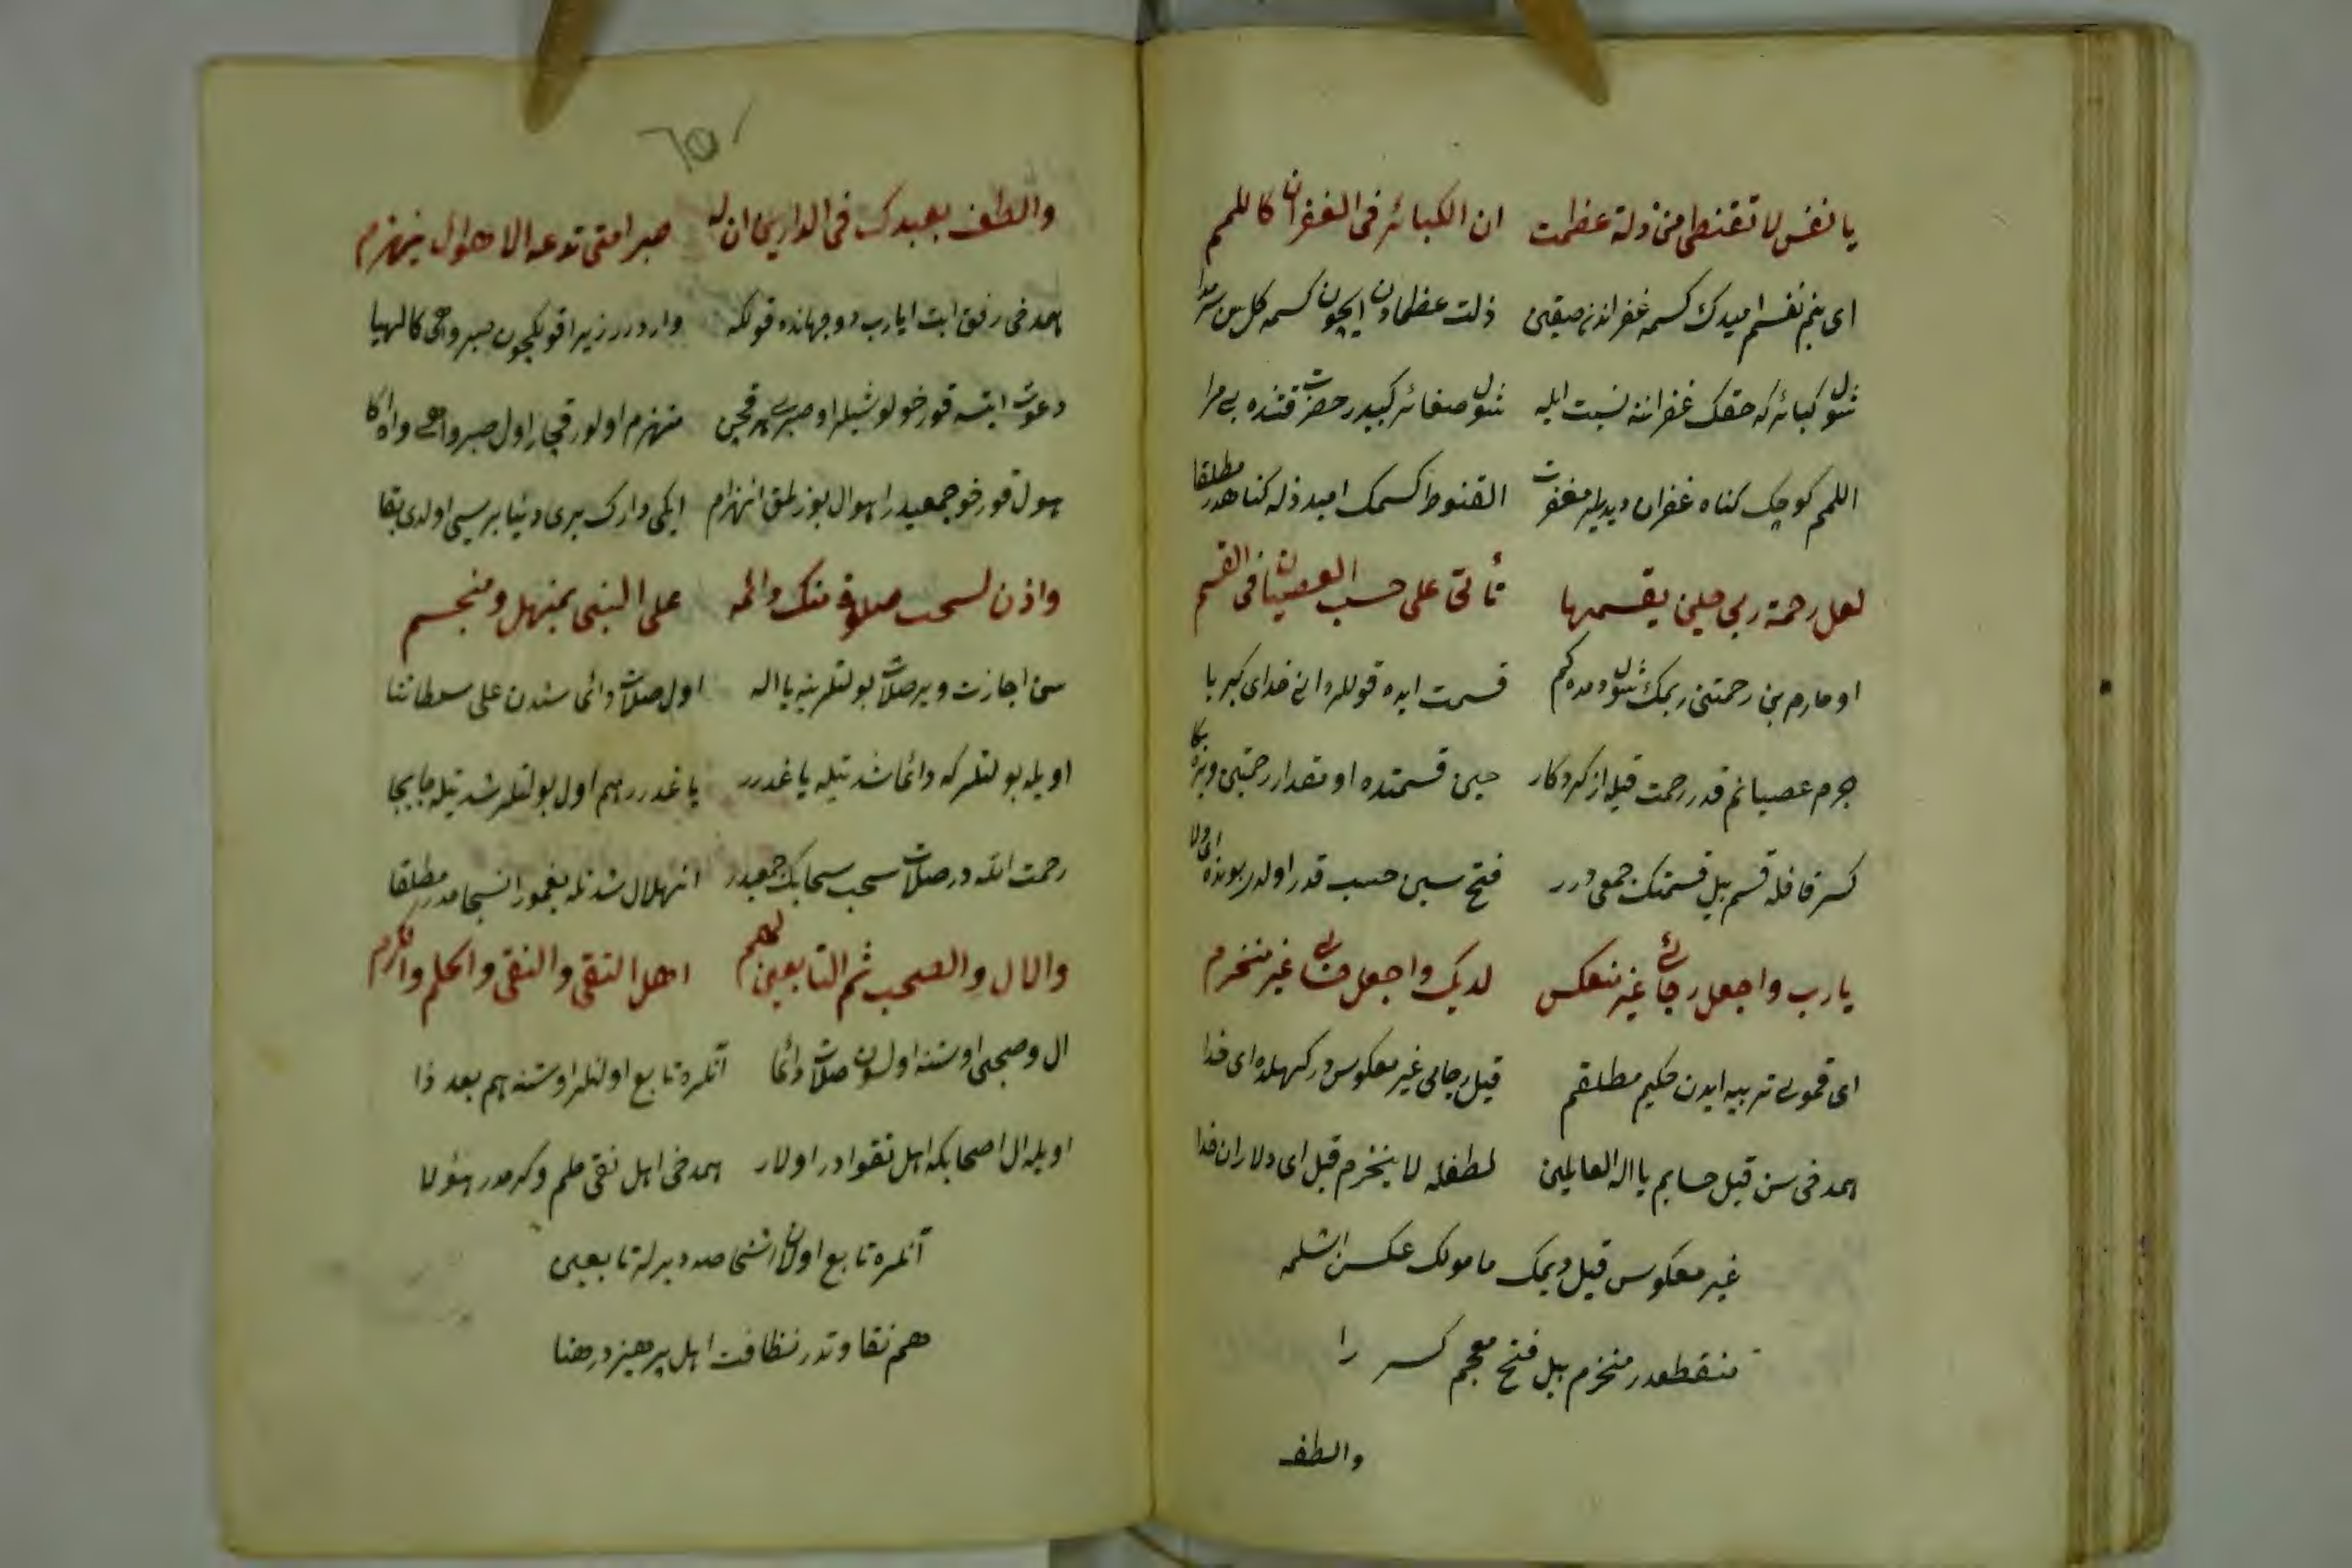 يا نفس لا تقنطى من زلة عظمت ان الكبائر فى الغفران كاللمم
اى بنم نفسم اميدك كسمه غفراندن صقين ذلت عظمادن ايچون كسمه كل سن سرمدا
شول كبائر كه حقك غفراننه نسبت ايله شول صغائر كبيدر حضرت قتنده بى مرا
اللمم كوچك كناه غفران ديديلر مغفرت القنوط كسمك اميد ذله كناهدر مطلقا
لعل رحمة ربى حين يقسمها تأتى على حسب العصيان فى القسم
اومارم بن رحمتنى ربمك شول دمده كم قسمت ايده قوللره انى خداى كبريا
جرم عصيانم قدر رحمت قيله از كردكار حين قسمتده او مقدار رحمتين ويره بكا
كسر قافله قسم بيل قسمتك جمعى درر فتح سين حسب قدر اولدر بونده اى ولا
يارب واجعل رجائى غير منعكس لديك واجعل حسابى غير منخرم
اى قموى تربيه ايدن حكيم مطلقم قيل رجامى غير معكوس دركهكده اى خدا
همدخى سن قيل حسابم يا اله العالمين لطفله لا ينخرم قيل اى دلاران خدا
غير معكوس قيل ديمك مامولك عكسن اشلمه
منقطعدر منخرم بيل فتح معجم كسر را
والطف
والطف بعبدك فى الدارين ان له صبرا متى تدعه الاهوال ينهزم
همدخى رفق ايت ايا رب دوجهانده قولكه واردرر زيرا قولكچون صبر واهى كالهبا
دعوت ايتسه قورخولو شيلر او صبرى هر قچن منهزم اولور قچار اول صبر واهى وادكا
هول قورخو جمعيدر اهوال بوزلمق انهزام ايكى دارك برى دنيا بريسى اولدى بقا
واذن لسحب صلاة منك دائمة على النبى بمنهل ومنسجم
سن اجازت وير صلات بولتلرينه يا اله اول صلات دائما سندن على سلطاننا
اويله بولتلر كه دائما شدتيله ياغدرر ياغدرر هم اول بولتلر شدتيله جابجا
رحمت الله در صلات سحب سحابك جمعيدر انهلال شدتله يغمور انسجامدر مطلقا
والال والصحب ثم التابعين لهم اهل التقى والنقى والحلم والكرم
ال وصحبى اوستنه اولسون صلات دائما آنلره تابع اولنلر اوستنه هم بعد ذا
اويله ال اصحابكه اهل تقوادر اولار همدخى اهل نقى حلم وكرمدر هؤلا
آنلره تابع اولان اشخاصه ديرلر تابعين
هم نقاوتدر نظافت اهل پرهيزدر هنا